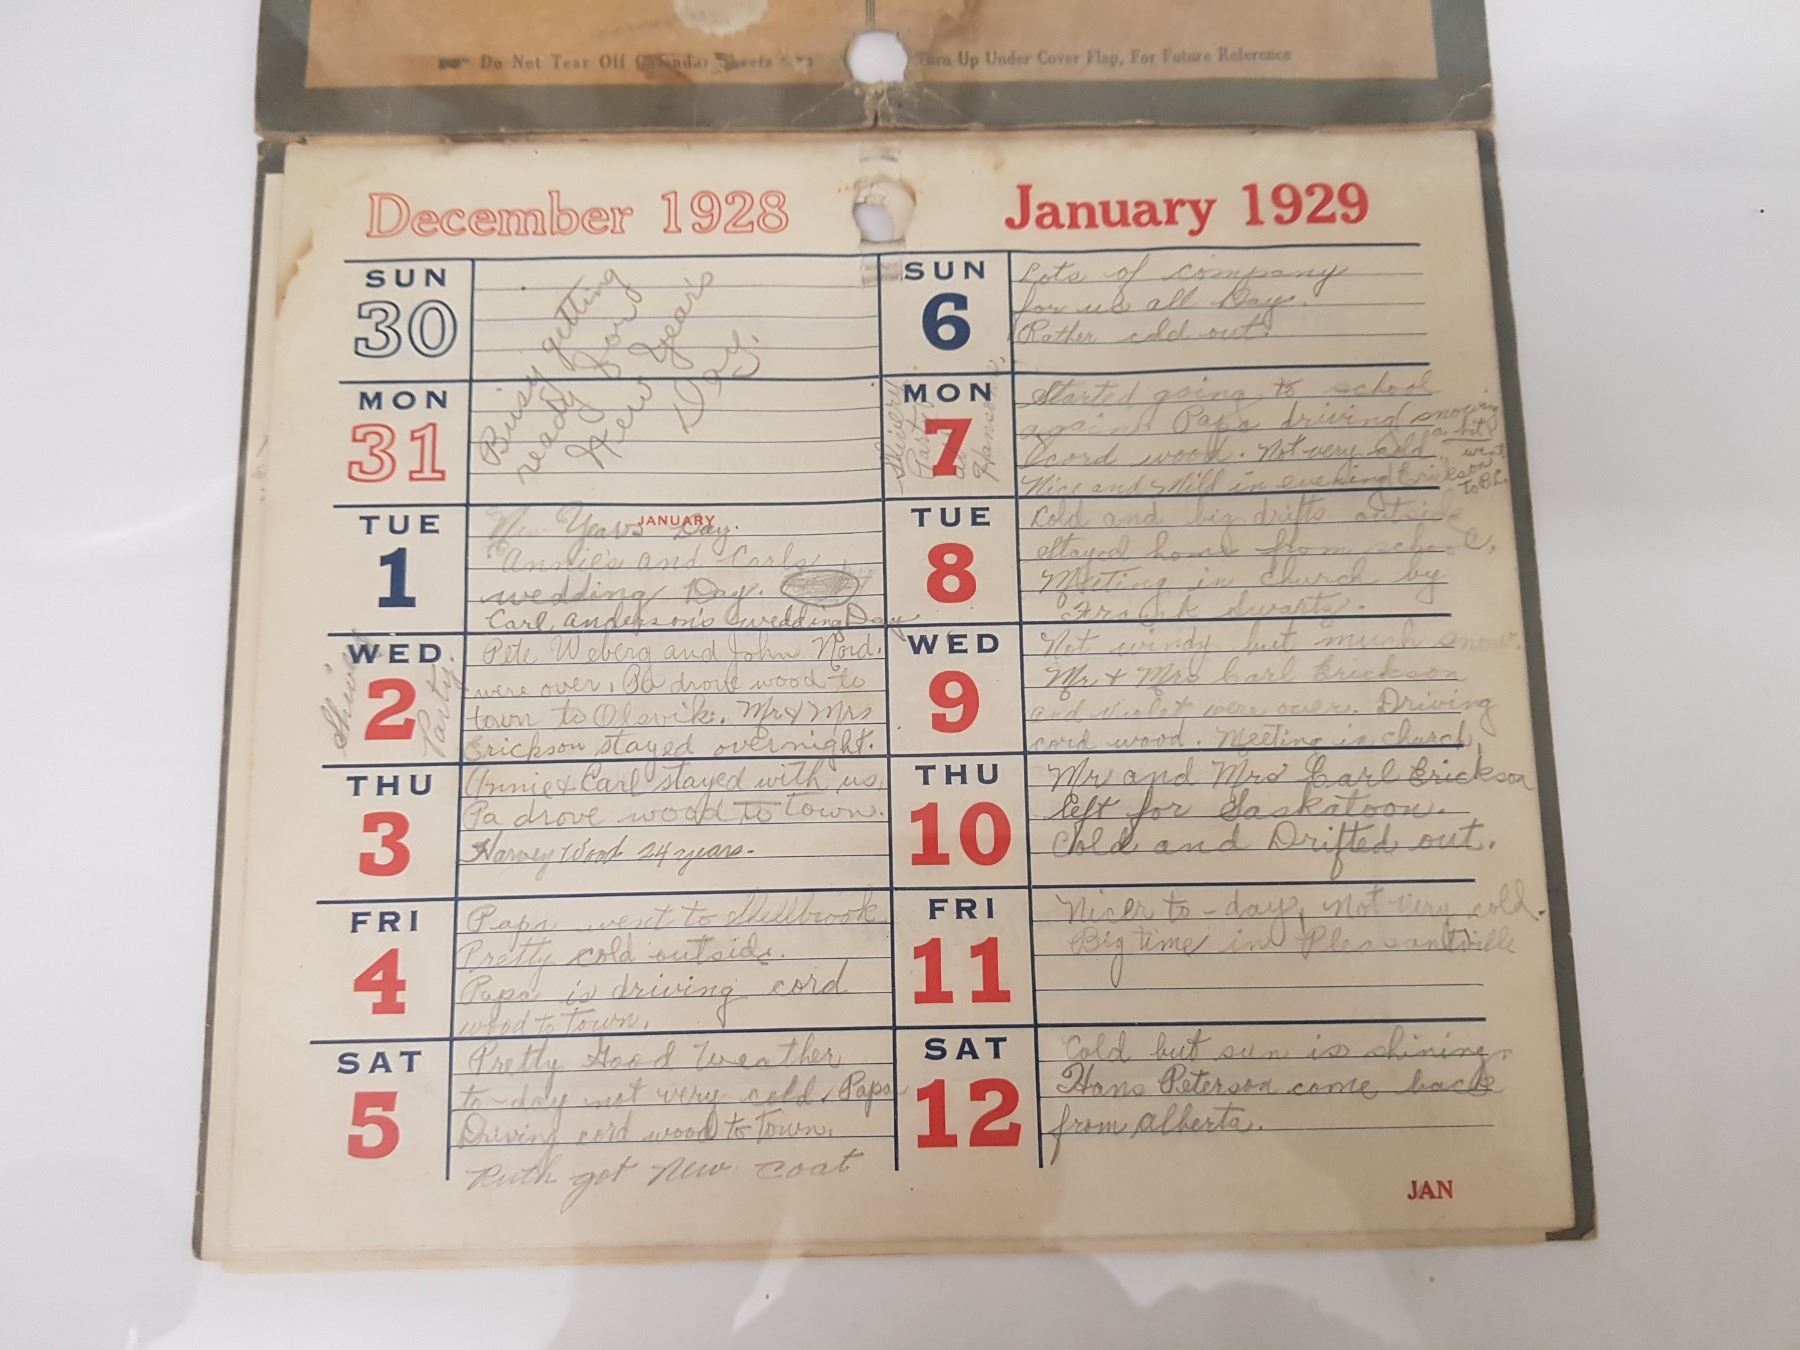 Do Not Tear Off Calendar Sheets
Turn Up Under Cover Flap, For Future Reference
December 1928
SUN
30
Busy getting
ready for
New Year's
Day.
MON
31
TUE
1
JANUARY
New Years Day.
Annie's and Carls
wedding Day.
Carl Anderson's wedding Day
WED
2
Party.
Pete Weberg and John Nord.
were over. Pa drove wood to
town to Olsvik. Mr & Mrs
Erickson stayed overnight.
THU
3
Annie & Carl stayed with us.
Pa drove wood to town.
Harvey Wood 24 years.
FRI
4
Papa went to Shellbrook
Pretty cold outside.
Papa is driving cord
wood to town.
SAT
5
Pretty Good Weather
to-day not very cold. Papa
Driving cord wood to town.
Ruth got New coat
January 1929
SUN
6
Lots of company
for us all Day.
Rather cold out.
MON
7
Party
Started going to school
again. Papa driving snowing
a bit
cord wood. Not very cold. went
Nice and Mild in evening Erickson
to
TUE
8
Cold and big drifts outside
Stayed home from school.
Meeting in church by
Frank Swartz.
WED
9
Not windy but much snow.
Mr & Mrs Carl Erickson
and Violet were over. Driving
cord wood. Meeting in church
THU
10
Mr and Mrs Carl Erickson
left for Saskatoon.
Cold and Drifted out.
FRI
11
Nicer to-day, not very cold.
Big time in Pleasantville
SAT
12
Cold but sun is shining
Hans Peterson come back
from Alberta.
JAN